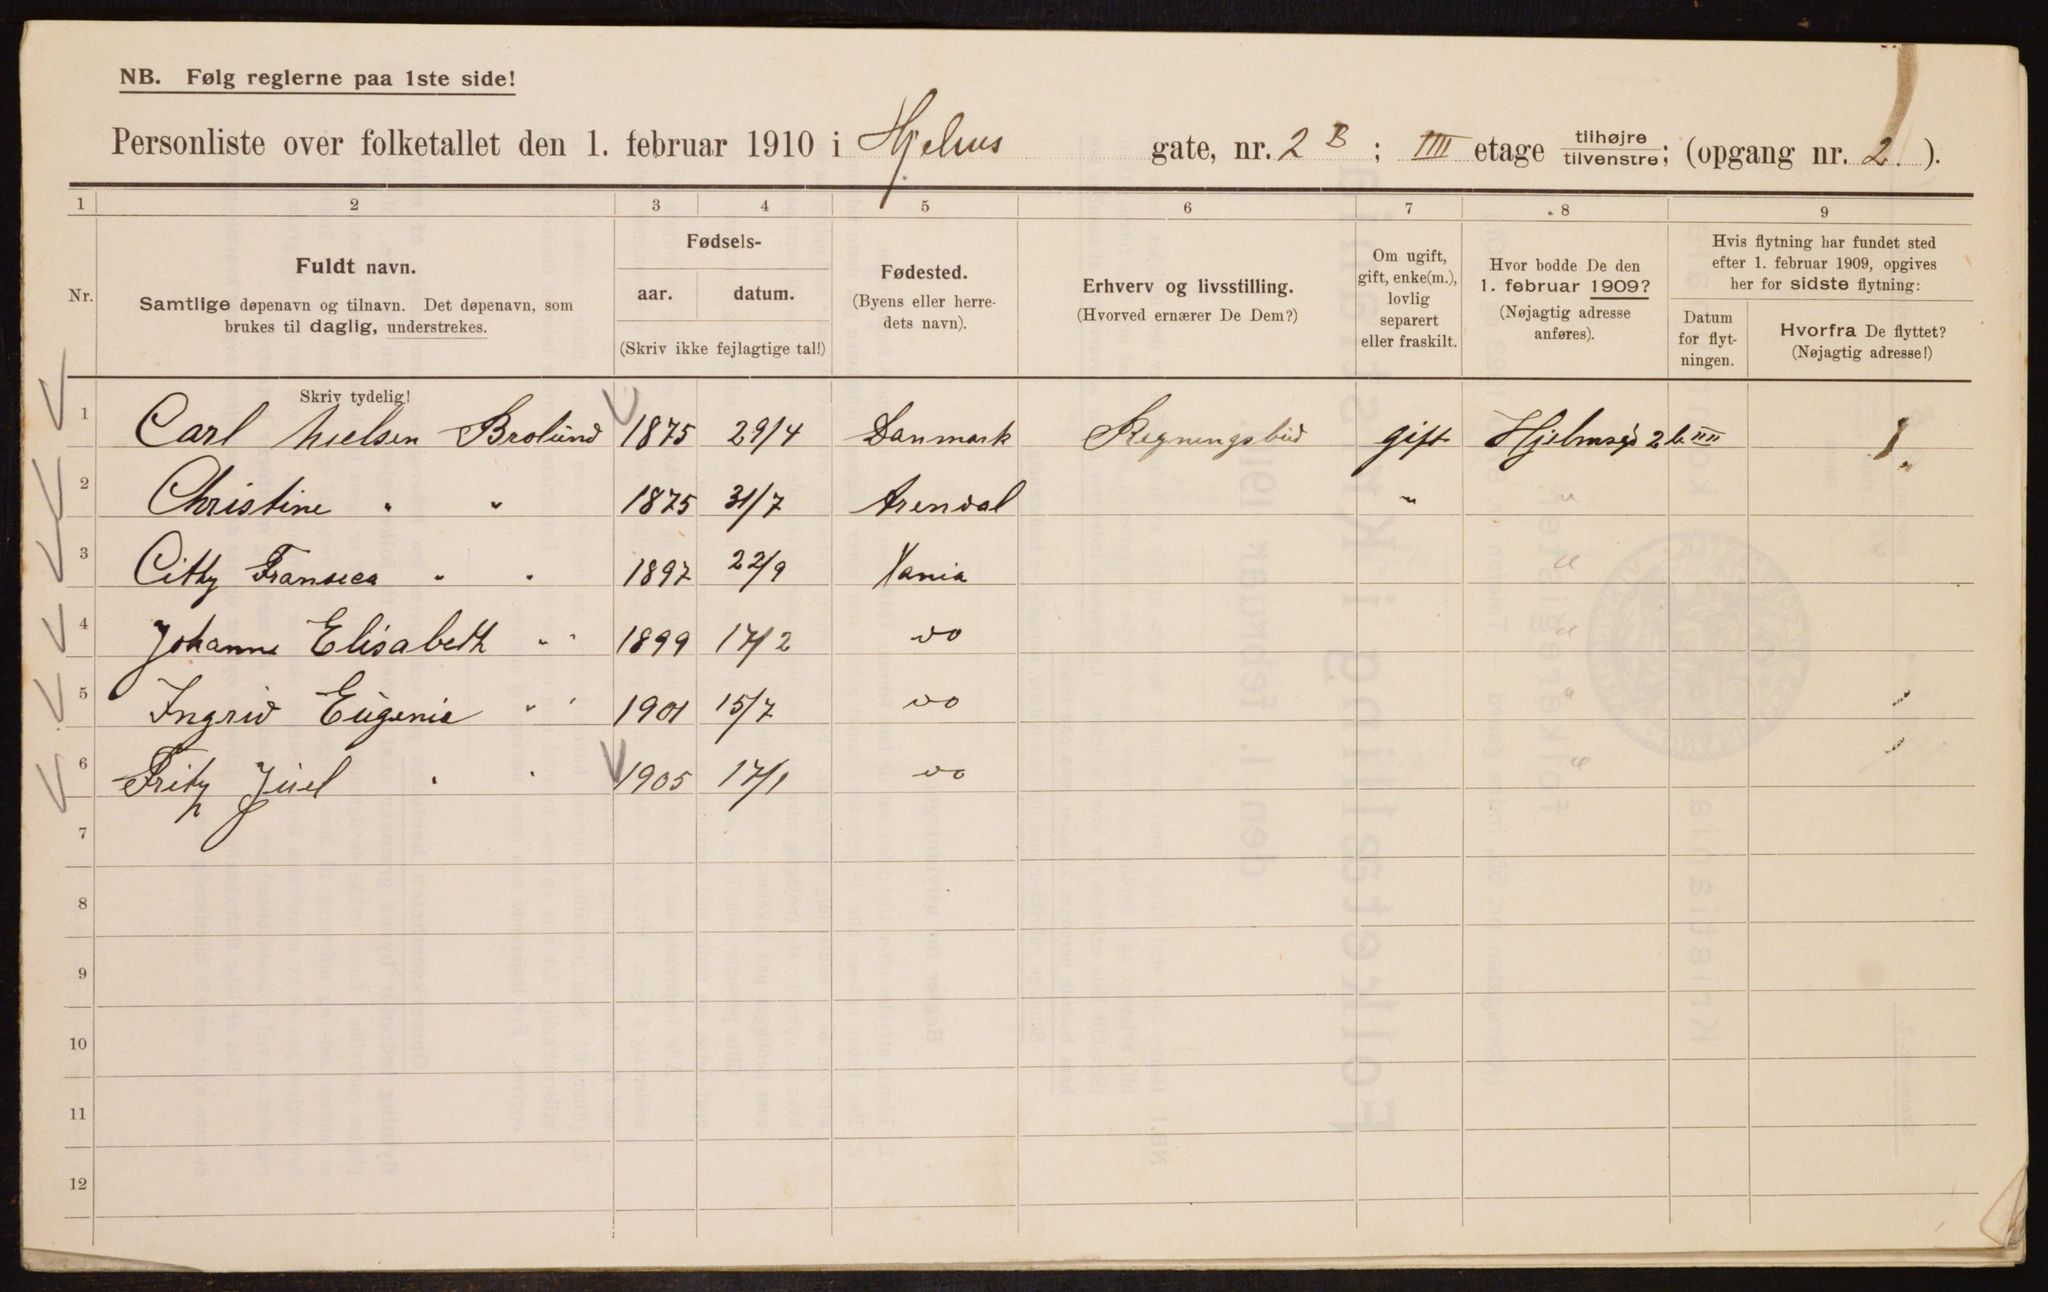 NB. Følg reglerne paa 1ste side!
Personliste over folketallet den 1. februar 1910 i Hjelms gate, nr. 2 B ; IIII etage tilhøjre / tilvenstre; (opgang nr. 2. ).
1 2 3 4 5 6 7 8 9
Nr.
Fuldt navn.
Samtlige døpenavn og tilnavn. Det døpenavn, som
brukes til daglig, understrekes.
Skriv tydelig!
Fødsels-
aar. datum.
(Skriv ikke fejlagtige tal!)
Fødested.
(Byens eller herre-
dets navn).
Erhverv og livsstilling.
(Hvorved ernærer De Dem?)
Om ugift,
gift, enke(m.),
lovlig
separert
eller fraskilt.
Hvor bodde De den
1. februar 1909?
(Nøjagtig adresse
anføres).
Hvis flytning har fundet sted
efter 1. februar 1909, opgives
her for sidste flytning:
Datum
for flyt-
ningen.
Hvorfra De flyttet?
(Nøjagtig adresse!)
1 Carl Nielsen Brolund 1875 29/4 Danmark Regningsbud gift Hjelmsgd 2 b IIII
2 Christine " " 1875 31/7 Arendal " "
3 Cithy Franseca " " 1897 22/9 Xania "
4 Johanne Elisabeth " " 1899 17/2 do "
5 Ingrid Eugenie " " 1901 15/7 do "
6 Fritz Juel " " 1905 17/1 do "
7
8
9
10
11
12